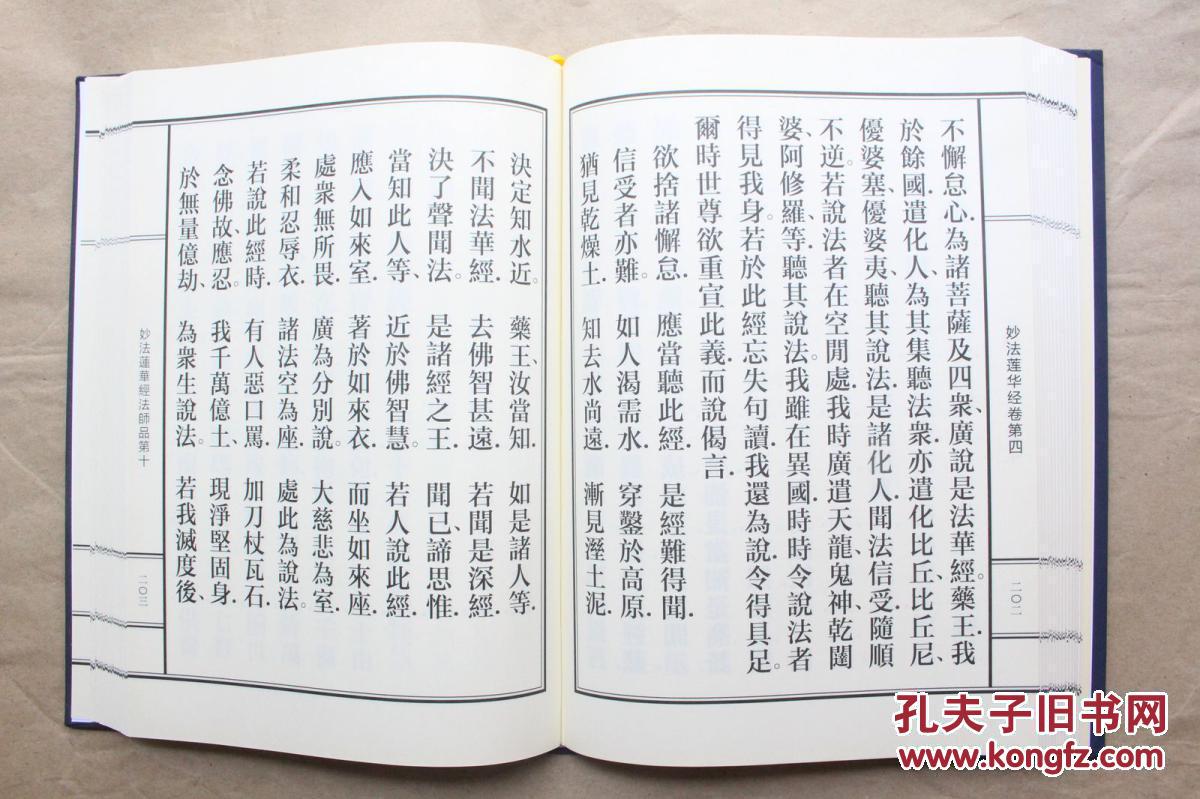 妙法莲华经卷第四
二〇二
不懈怠心.為諸菩薩及四衆、廣說是法華經。藥王.我
於餘國.遣化人、為其集聽法衆.亦遣化比丘、比丘尼、
優婆塞、優婆夷、聽其說法.是諸化人.聞法信受.隨順
不逆。若說法者.在空閒處.我時廣遣天龍、鬼神、乾闥
婆、阿修羅、等.聽其說法。我雖在異國.時時令說法者
得見我身。若於此經.忘失句讀.我還為說.令得具足。
爾時世尊欲重宣此義.而說偈言.
欲捨諸懈怠.　應當聽此經.　是經難得聞.
信受者亦難。　如人渴需水.　穿鑿於高原.
猶見乾燥土.　知去水尚遠.　漸見溼土泥.
決定知水近。　藥王、汝當知.　如是諸人等.
不聞法華經.　去佛智甚遠.　若聞是深經.
決了聲聞法。　是諸經之王.　聞已、諦思惟.
當知此人等、　近於佛智慧。　若人說此經.
應入如來室.　著於如來衣.　而坐如來座.
處衆無所畏.　廣為分別說。　大慈悲為室.
柔和忍辱衣.　諸法空為座.　處此為說法。
若說此經時.　有人惡口罵.　加刀杖瓦石.
念佛故應忍。　我千萬億土、　現淨堅固身.
於無量億劫、　為衆生說法。　若我滅度後、
妙法蓮華經法師品第十
二〇三
孔夫子旧书网
www.kongfz.com